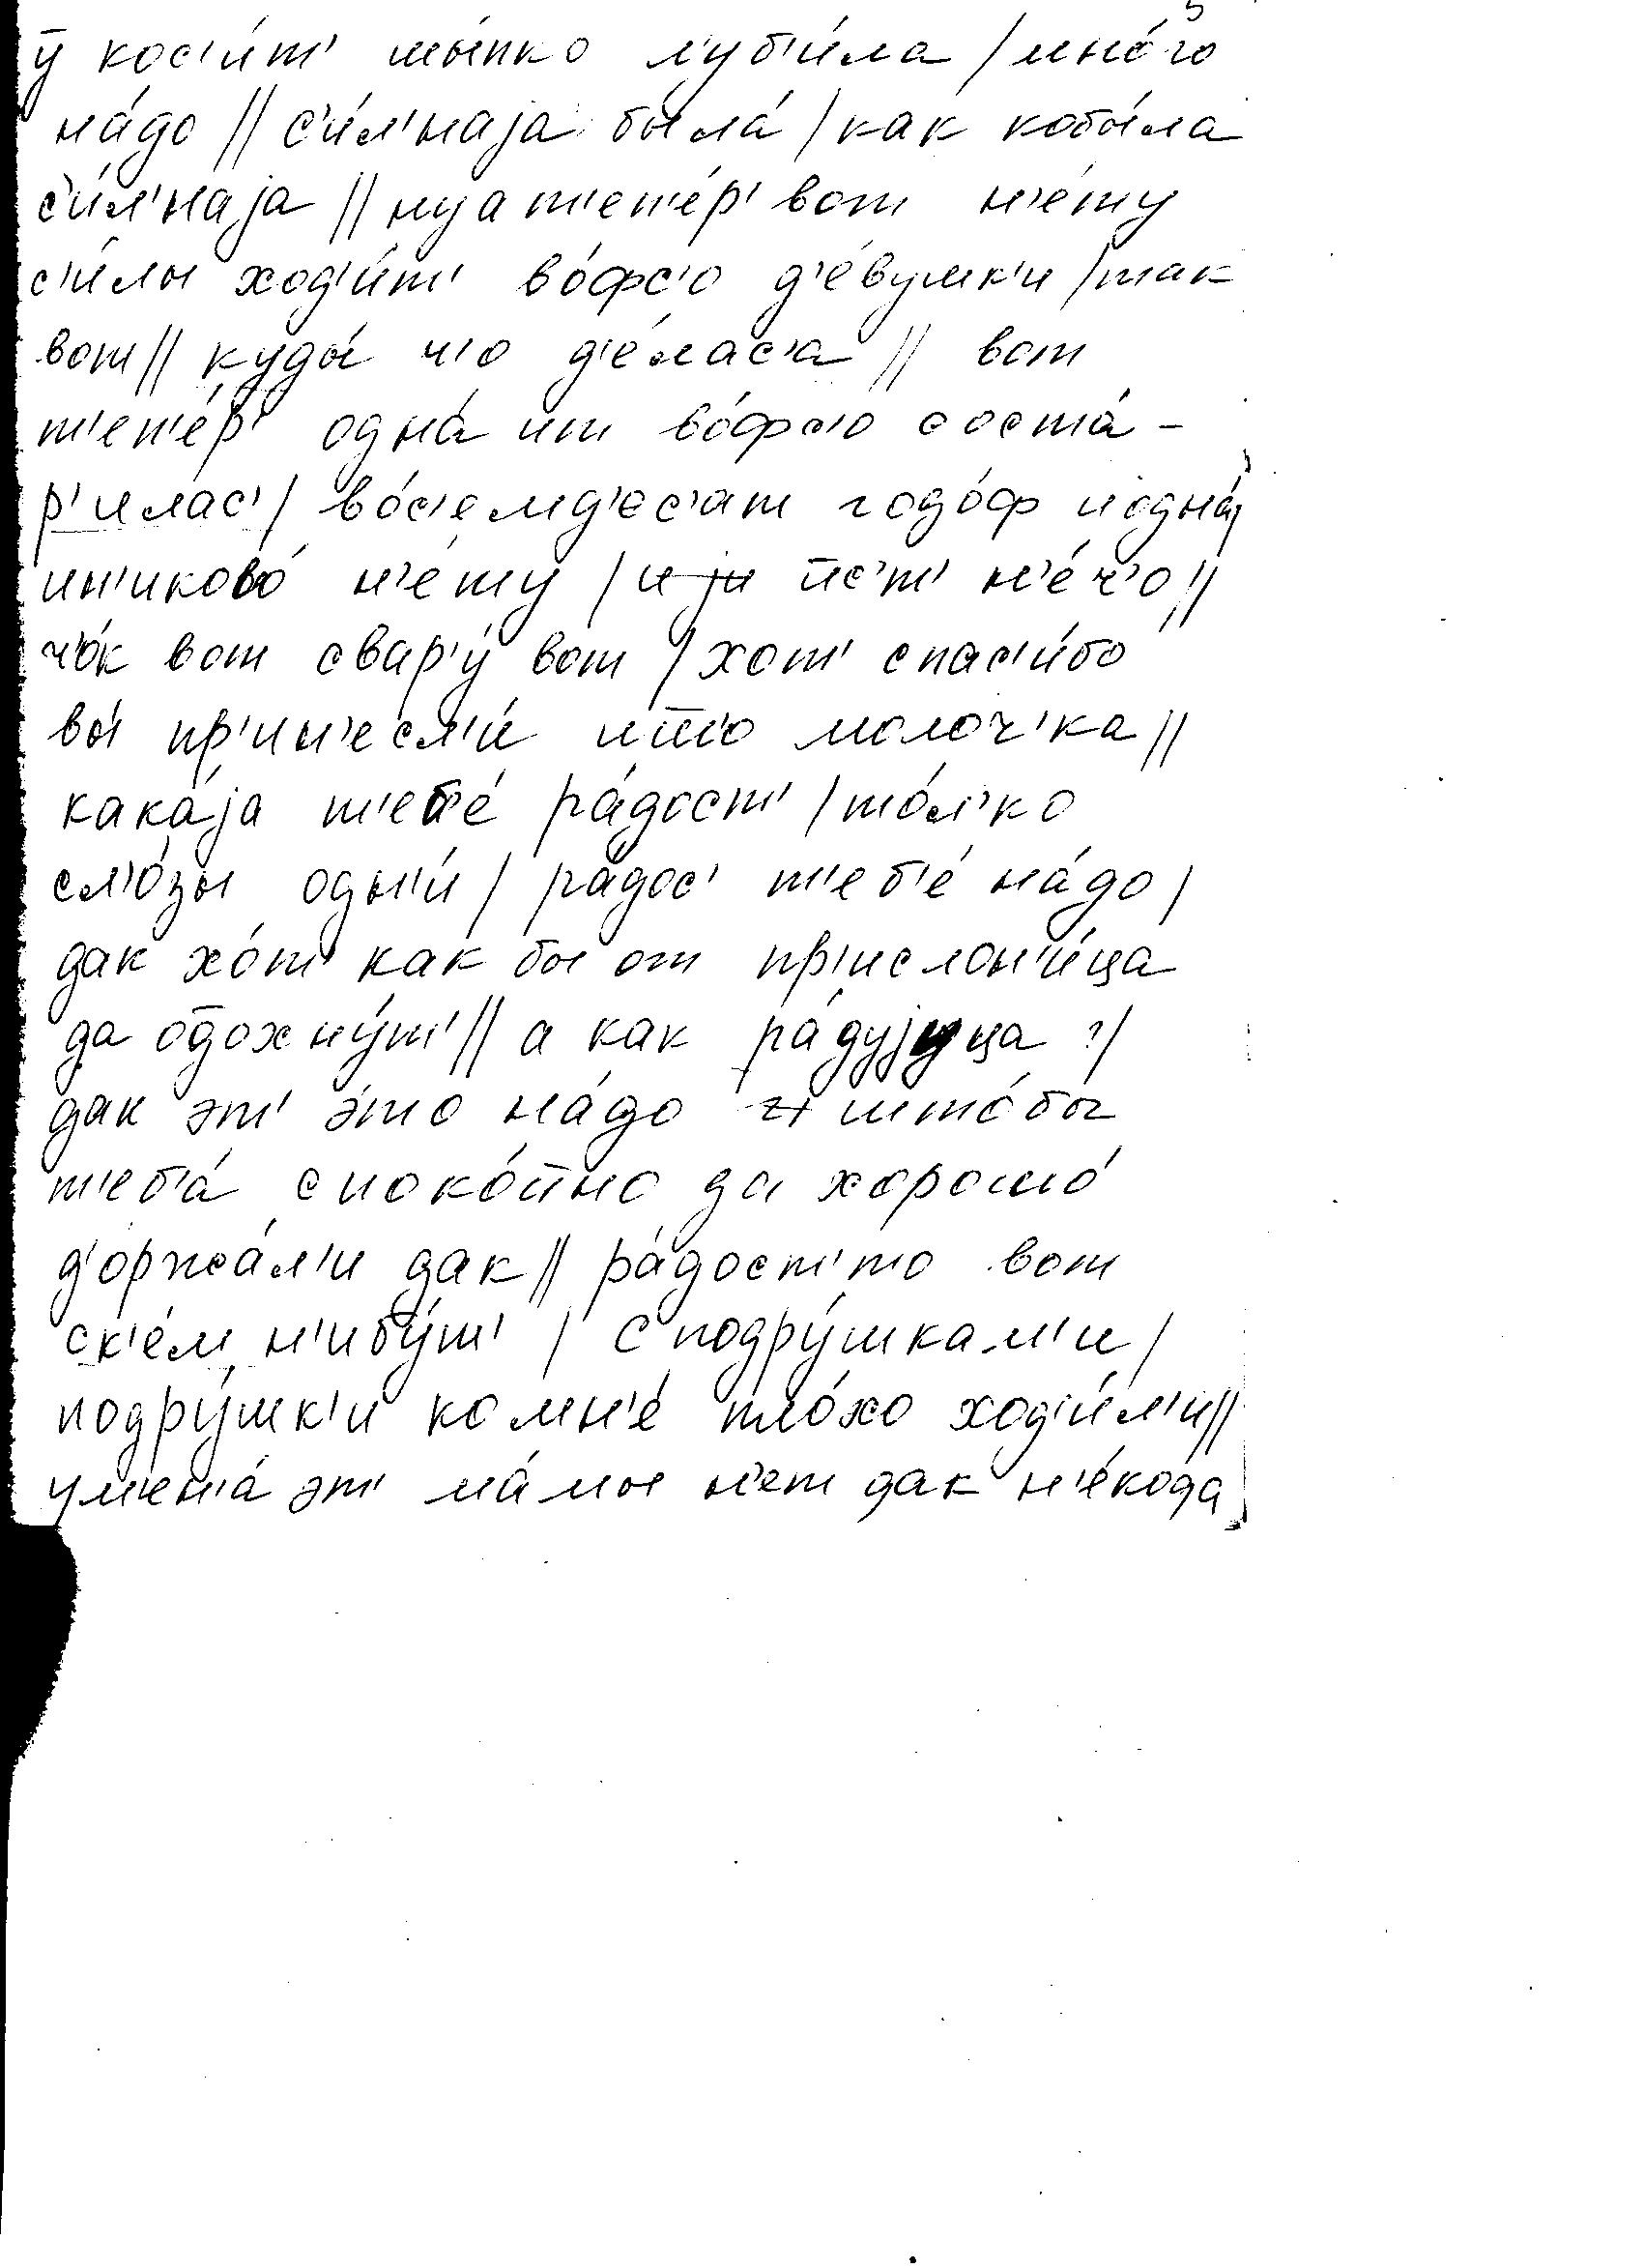 ӯ кос'и́т' шы́пко л'уб'и́ла / мно́го
на́до // с'и́л'наjа была́ / как кобы́ла
с'и́л'наjа // ну а т'еп'е́р' вот н'е́ту
с'и́лы ход'и́т' во́фс'о д'е́вушк'и / так
вот // куды́ ч'о д'е́лас'а // вот
т'еп'е́р' одна́ ит во́фс'о соста́-
р'илас' / во́с'емд'ес'ат годо́ф и одна́ /
и н'иково́ н'е́ту / и jи йе́с'т' н'е́ч'о //
ч'о́к вот свар'у́ вот / хот' спас'и́бо
вы́ пр'ин'есл'и́ што молоч'ка //
кака́jа т'еб'е́ ра́дост' / то́л'ко
сл'о́зы одн'и́ / ра́дос' т'еб'е́ на́до /
дак хо́т' как бы от пр'ислон'и́ца
да одохну́т' // а как ра́дуjуца ? /
дак эт' э́то на́до што́бы
т'еб'а́ споко́йно да хорошо́
д'оржа́л'и дак // ра́дост' то вот
с к'е́м н'ибу́т' / с подру́шкам'и /
подру́шк'и ко мн'е́ пло́хо ход'и́л'и //
у м'ен'а́ эт' ма́мы н'ет дак н'е́кода